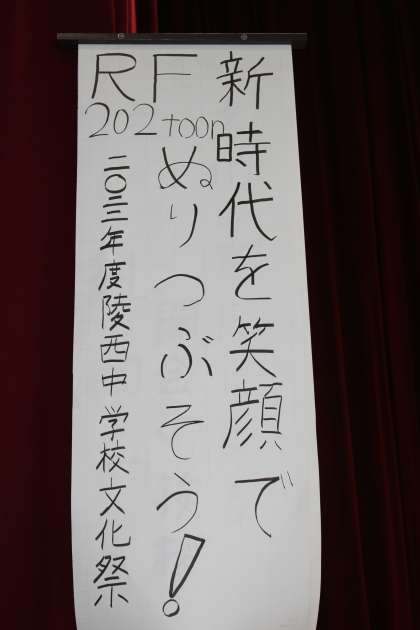 新時代を笑顔で
ぬりつぶそう!
RF
202toon
二〇二三年度陵西中学校文化祭